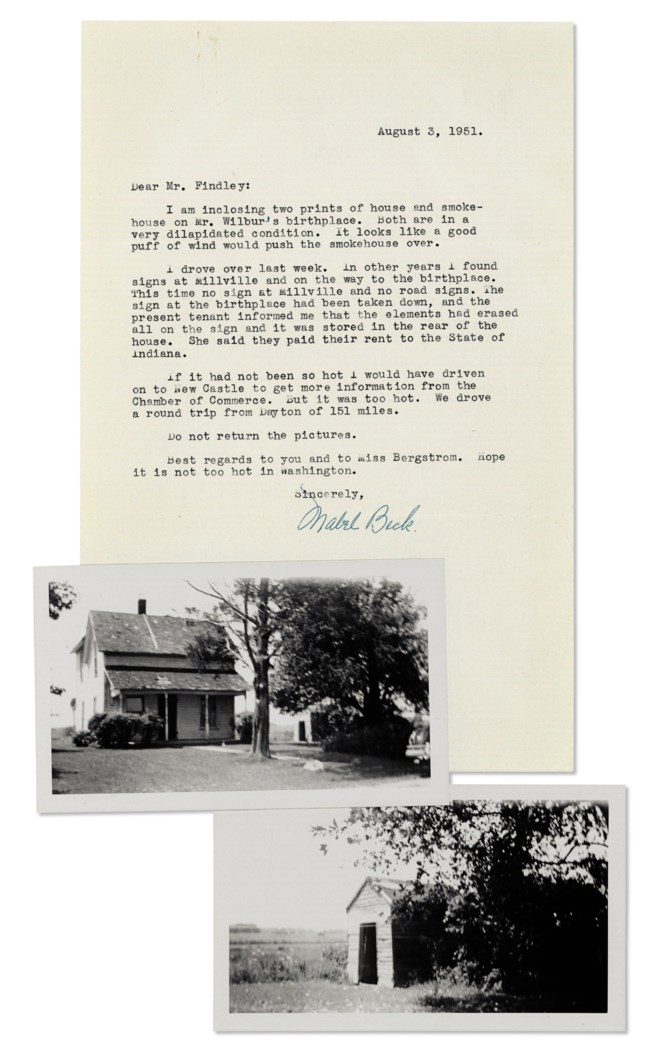 August 3, 1951.
Dear Mr. Findley:
I am inclosing two prints of house and smoke-
house on Mr. Wilbur's birthplace. Both are in a
very dilapidated condition. It looks like a good
puff of wind would push the smokehouse over.
I drove over last week. In other years I found
signs at Millville and on the way to the birthplace.
This time no sign at Millville and no road signs. The
sign at the birthplace had been taken down, and the
present tenant informed me that the elements had erased
all on the sign and it was stored in the rear of the
house. She said they paid their rent to the State of
Indiana.
If it had not been so hot I would have driven
on to New Castle to get more information from the
Chamber of Commerce. But it was too hot. We drove
a round trip from Dayton of 151 miles.
Do not return the pictures.
Best regards to you and to Miss Bergstrom. Hope
it is not too hot in Washington.
Sincerely,
Mabel Beck.